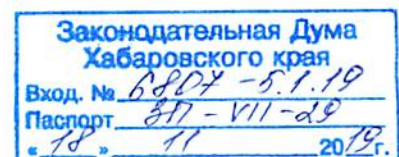 Законодательная Дума
Хабаровского края
Вход. № 6807-5.1.19
Паспорт ЗП-VII-29
« 18 » 11 2019г.